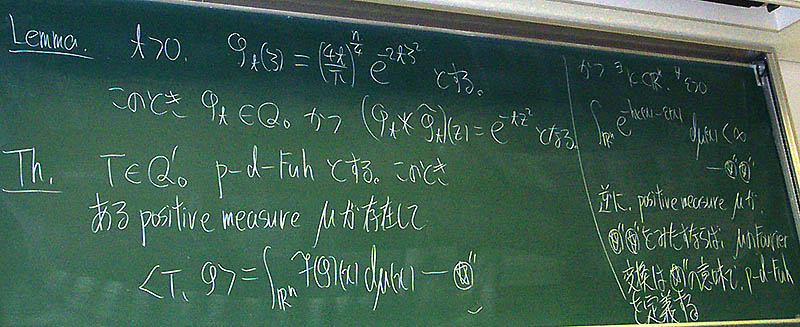 Lemma. t>0. φ_t(z) = (4t/π)^{n/4} e^{-2tz²} とする。
このとき φ_t ∈ Q₀ かつ (φ_t * φ̃_t)(z) = e^{-tz²} となる。
Th. T∈Q₀' p-d-Fuh とする。このとき
ある positive measure μ が存在して
<T, φ> = ∫_{ℝⁿ} F(φ)(x) dμ(x) —
かつ
∫_{ℝⁿ} dμ(x) < ∞
逆に、positive measure μ が、
をみたすならば、μのFourier
変換は の意味で、p-d-Fuh
を定義する